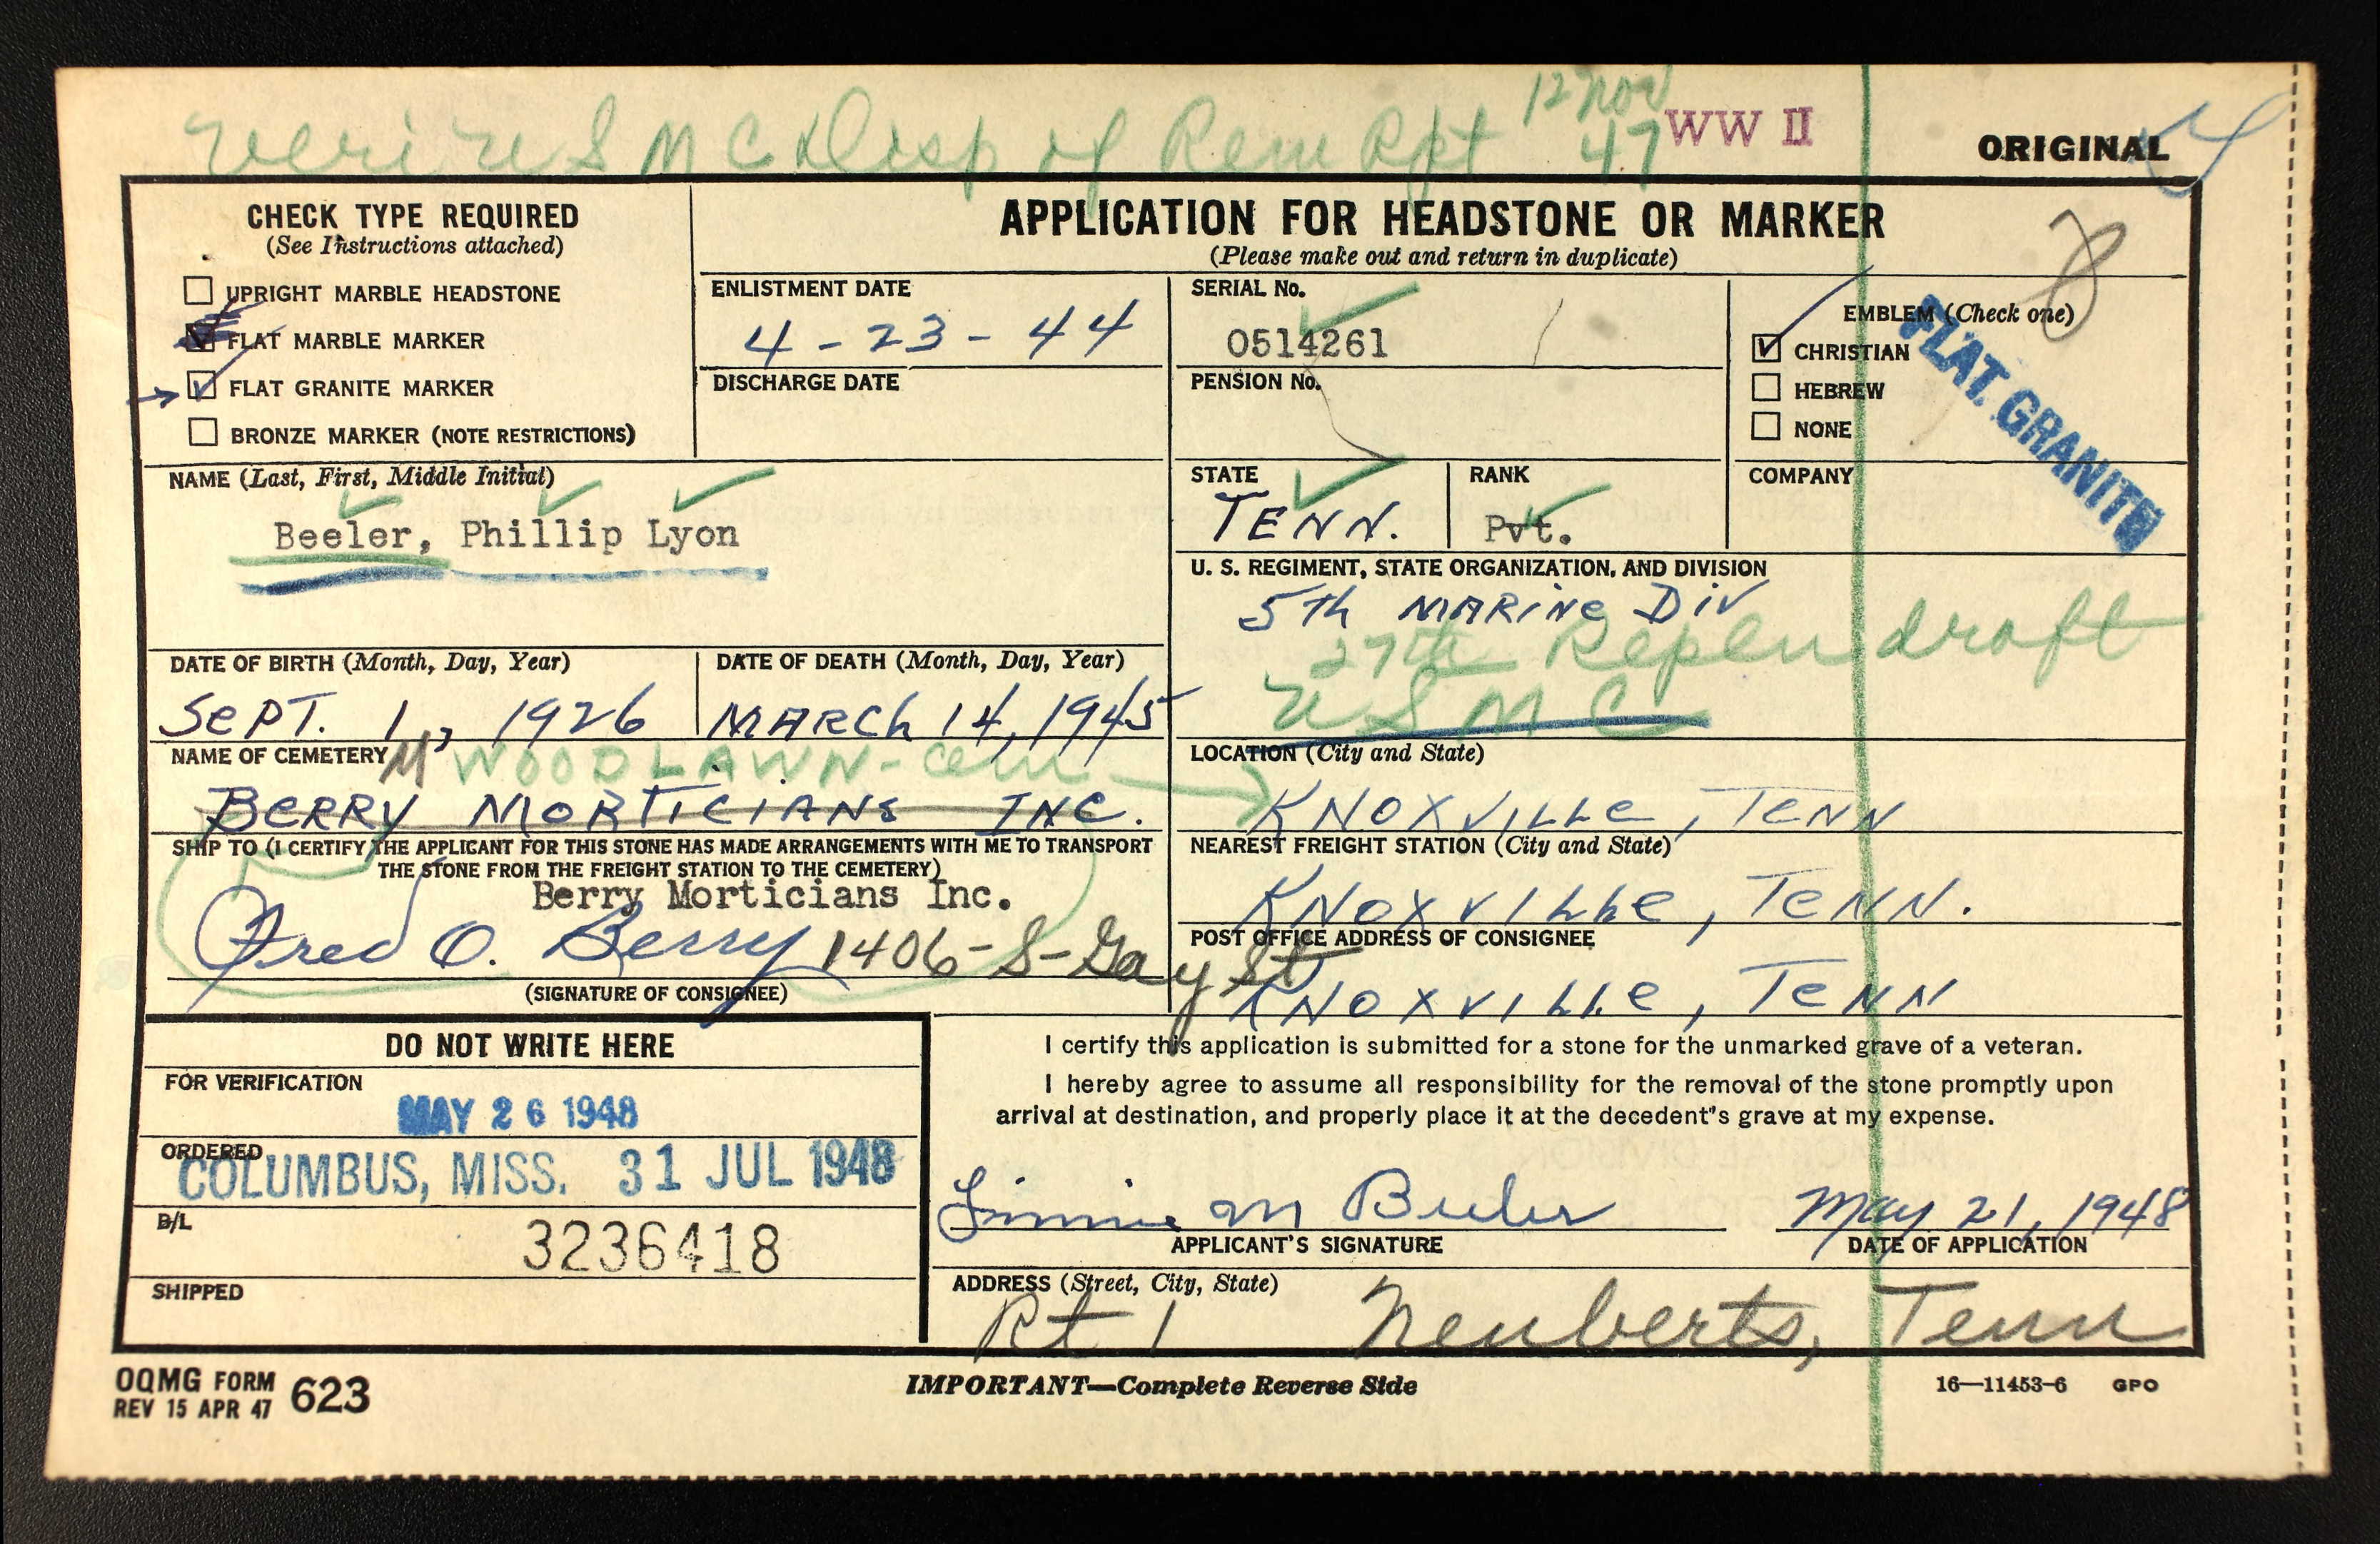 Veri USMC & Disp of Rem Rpt 12 Nov 47
WW II
ORIGINAL
CHECK TYPE REQUIRED
(See Instructions attached)
UPRIGHT MARBLE HEADSTONE
FLAT MARBLE MARKER
FLAT GRANITE MARKER
BRONZE MARKER (NOTE RESTRICTIONS)
APPLICATION FOR HEADSTONE OR MARKER
(Please make out and return in duplicate)
ENLISTMENT DATE
4-23-44
DISCHARGE DATE
SERIAL No.
0514261
PENSION No.
EMBLEM (Check one)
CHRISTIAN
HEBREW
NONE
FLAT GRANITE
NAME (Last, First, Middle Initial)
Beeler, Phillip Lyon
STATE
TENN.
RANK
Pvt.
COMPANY
U. S. REGIMENT, STATE ORGANIZATION, AND DIVISION
5th MARINE DIV
27th Replen draft
USMC
DATE OF BIRTH (Month, Day, Year)
SEPT. 1, 1926
DATE OF DEATH (Month, Day, Year)
MARCH 14, 1945
NAME OF CEMETERY
WOODLAWN-Cem
BERRY MORTICIANS INC.
LOCATION (City and State)
KNOXVILLE, TENN
SHIP TO (I CERTIFY THE APPLICANT FOR THIS STONE HAS MADE ARRANGEMENTS WITH ME TO TRANSPORT
THE STONE FROM THE FREIGHT STATION TO THE CEMETERY)
Berry Morticians Inc.
Fred O. Berry 1406-S-Gay St
(SIGNATURE OF CONSIGNEE)
NEAREST FREIGHT STATION (City and State)
KNOXVILLE, TENN.
POST OFFICE ADDRESS OF CONSIGNEE
KNOXVILLE, TENN
DO NOT WRITE HERE
FOR VERIFICATION
MAY 26 1948
ORDERED
COLUMBUS, MISS. 31 JUL 1948
B/L
3236418
SHIPPED
I certify this application is submitted for a stone for the unmarked grave of a veteran.
I hereby agree to assume all responsibility for the removal of the stone promptly upon
arrival at destination, and properly place it at the decedent's grave at my expense.
Linnie M Beeler
May 21, 1948
APPLICANT'S SIGNATURE
DATE OF APPLICATION
ADDRESS (Street, City, State)
Rt 1 Neuberts, Tenn
OQMG FORM 623
REV 15 APR 47
IMPORTANT—Complete Reverse Side
16—11453-6 GPO